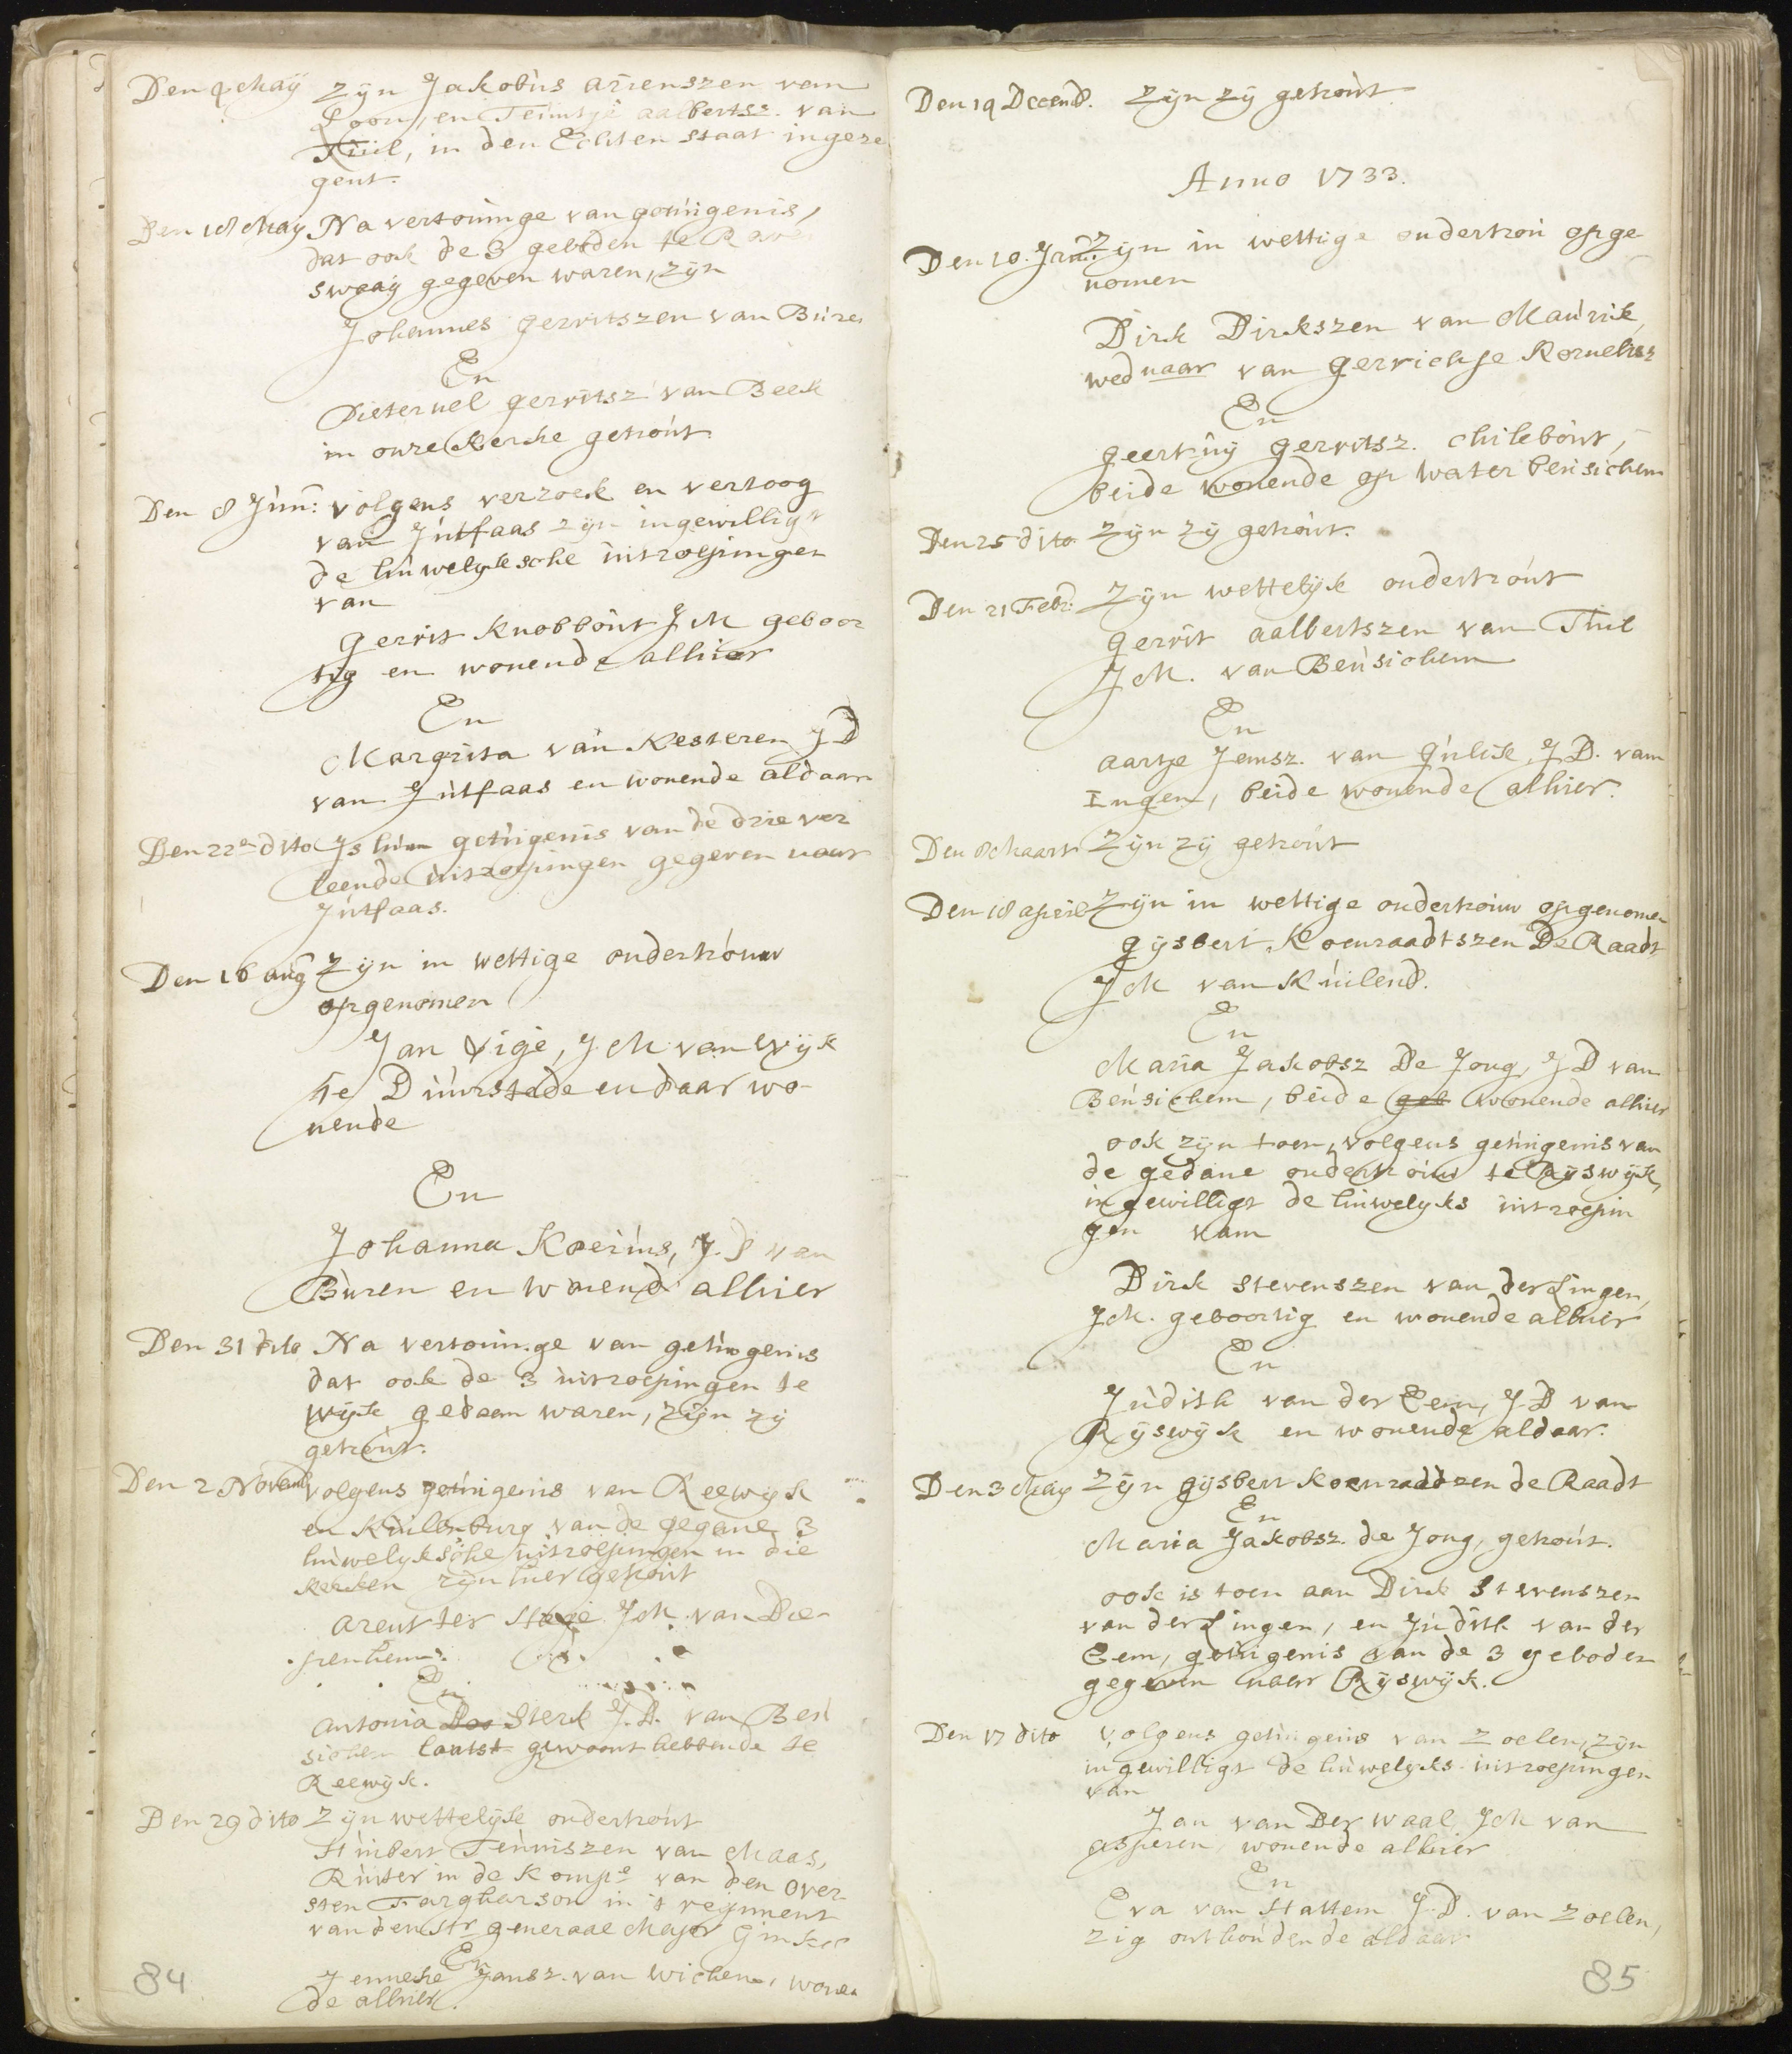 Den 4 May zyn Jakobus arienszen van
Loon, en Teuntje aalbertsz. van
Tuil, in den Echten staat ingeze
gent.
Den 18 May Na vertoninge van getuigenis,
dat ook de 3 geboden te Rave
swaay gegeven waren, zyn
Johannes gerritszen van Buren
En
Pieternel gerritsz van Beek
in onze Kerke getrout
Den 8 Jun: volgens verzoek en vertoog
van Jutfaas zyn ingewilligt
de huwelyksche uitroepingen
van
gerrit Knobbout J M geboor
tig en wonende alhier
En
Margrita van Kesteren J D
van Jutfaas en wonende aldaar
Den 22e dito Is hun getuigenis van de drie ver
leende uitroepingen gegeven naar
Jutfaas.
Den 16 aug Zyn in wettige ondertrouw
opgenomen
Jan Vigé, J M van Wyk
te Duurstede en daar wo-
nende
En
Johanna Koerius, J. D van
Buren en wonend alhier
Den 31 dito Na vertoninge van getuigenis
dat ook de 3 uitroepingen te
Wyk gedaen waren, zyn zy
getrout.
Den 2 Novemb volgens getuigenis van Reewyk
en Kuilenburg van de gegane 3
huwelyksche uitroepingen in die
kerken zyn hier getrout
arent ter Stege J M. van Die
penhem.
En
antonia Sterk J. D. van Beu
sichem laatst gewoont hebbende te
Reewyk.
Den 29 dito Zyn wettelyk ondertrout
Huibert Teuniszen van Maas,
Ruiter in de Kompe van den Over
sten Fargharson in 't regiment
van den Hr generaal Major Ginkel
En
Jenneke Jansz. van Wichen, wonen
de alhier.
84
Den 14 Decemb. Zyn zy getrout
Anno 1733.
Den 10. Jan: Zyn in wettige ondertrou opge
nomen
Dirk Dirkszen van Maurik,
wednaar van gerrichje Kornelisz
En
geertruy gerritsz. Hilebout,
beide wonende op Water beusichem
Den 25 dito Zyn zy getrout.
Den 21 Febr: Zyn wettelyk ondertrout
gerrit aalbertszen van Thuil
J M. van Beusichem
En
aartje Jansz. van Gulik, J. D. van
Ingen, beide wonende alhier.
Den 8 Maart Zyn zy getrout
Den 18 april Zyn in wettige ondertrouw opgenomen
gysbert Koenraadtszen De Raadt
J M van Kuilenb.
En
Maria Jakobsz De Jong, J D van
Beusichem, beide geb wonende alhier
ook zyn toen, volgens getuigenis van
de gedane ondertrouw te Ryswyk,
ingewilligt de huwelyks uitroepin
gen van
Dirk Stevenszen van der Lingen,
J M. geboortig en wonende alhier
En
Judith van der Eem, J. D van
Ryswyk en wonende aldaar.
Den 3 May Zyn gysbert Koenraadszen de Raadt
En
Maria Jakobsz. de Jong, getrout.
ook is toen aan Dirk Stevenszen
van der Lingen, en Judith van der
Eem, getuigenis van de 3 geboden
gegeven naar Ryswyk.
Den 17 dito Volgens getuigenis van Zoelen, zyn
ingewilligt de huwelyks uitroepingen
van
Jan van Der Waal J M van
asperen, wonende alhier
En
Eva van Hattem J. D. van Zoelen,
zig onthoudende aldaar
85